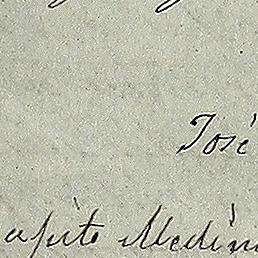 José
apito Medin